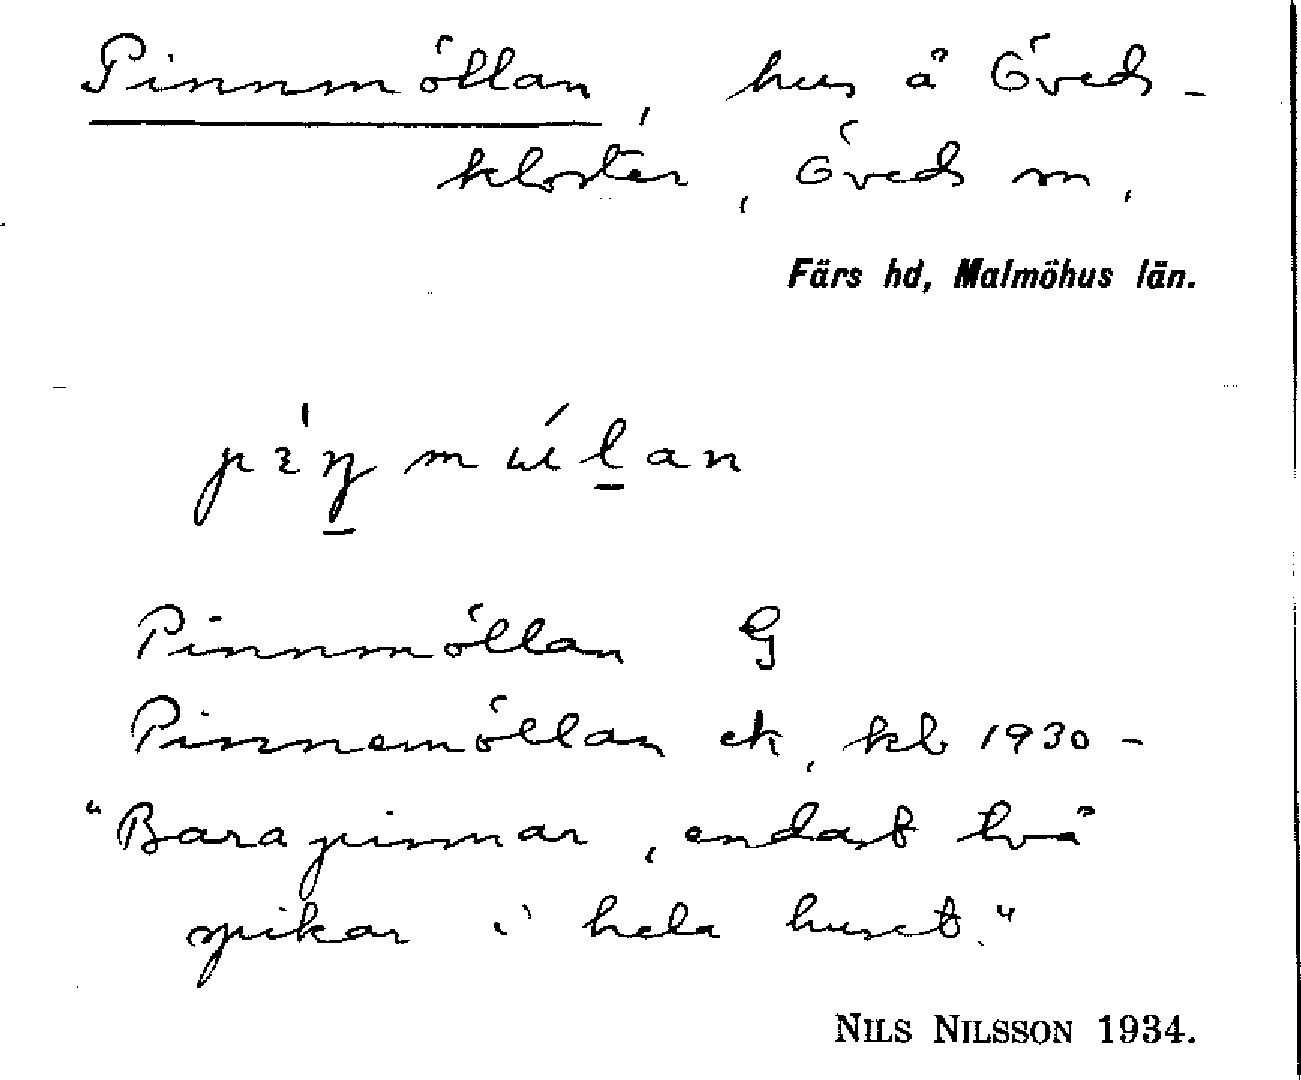 Pinnmöllan, hus å Öveds-
kloster, Öveds sn,
Färs hd, Malmöhus län.
Pinnmöllan G
Pinnemöllan ek, kb 1930 -
"Bara pinnar, endast två
spikar i hela huset."
NILS NILSSON 1934.